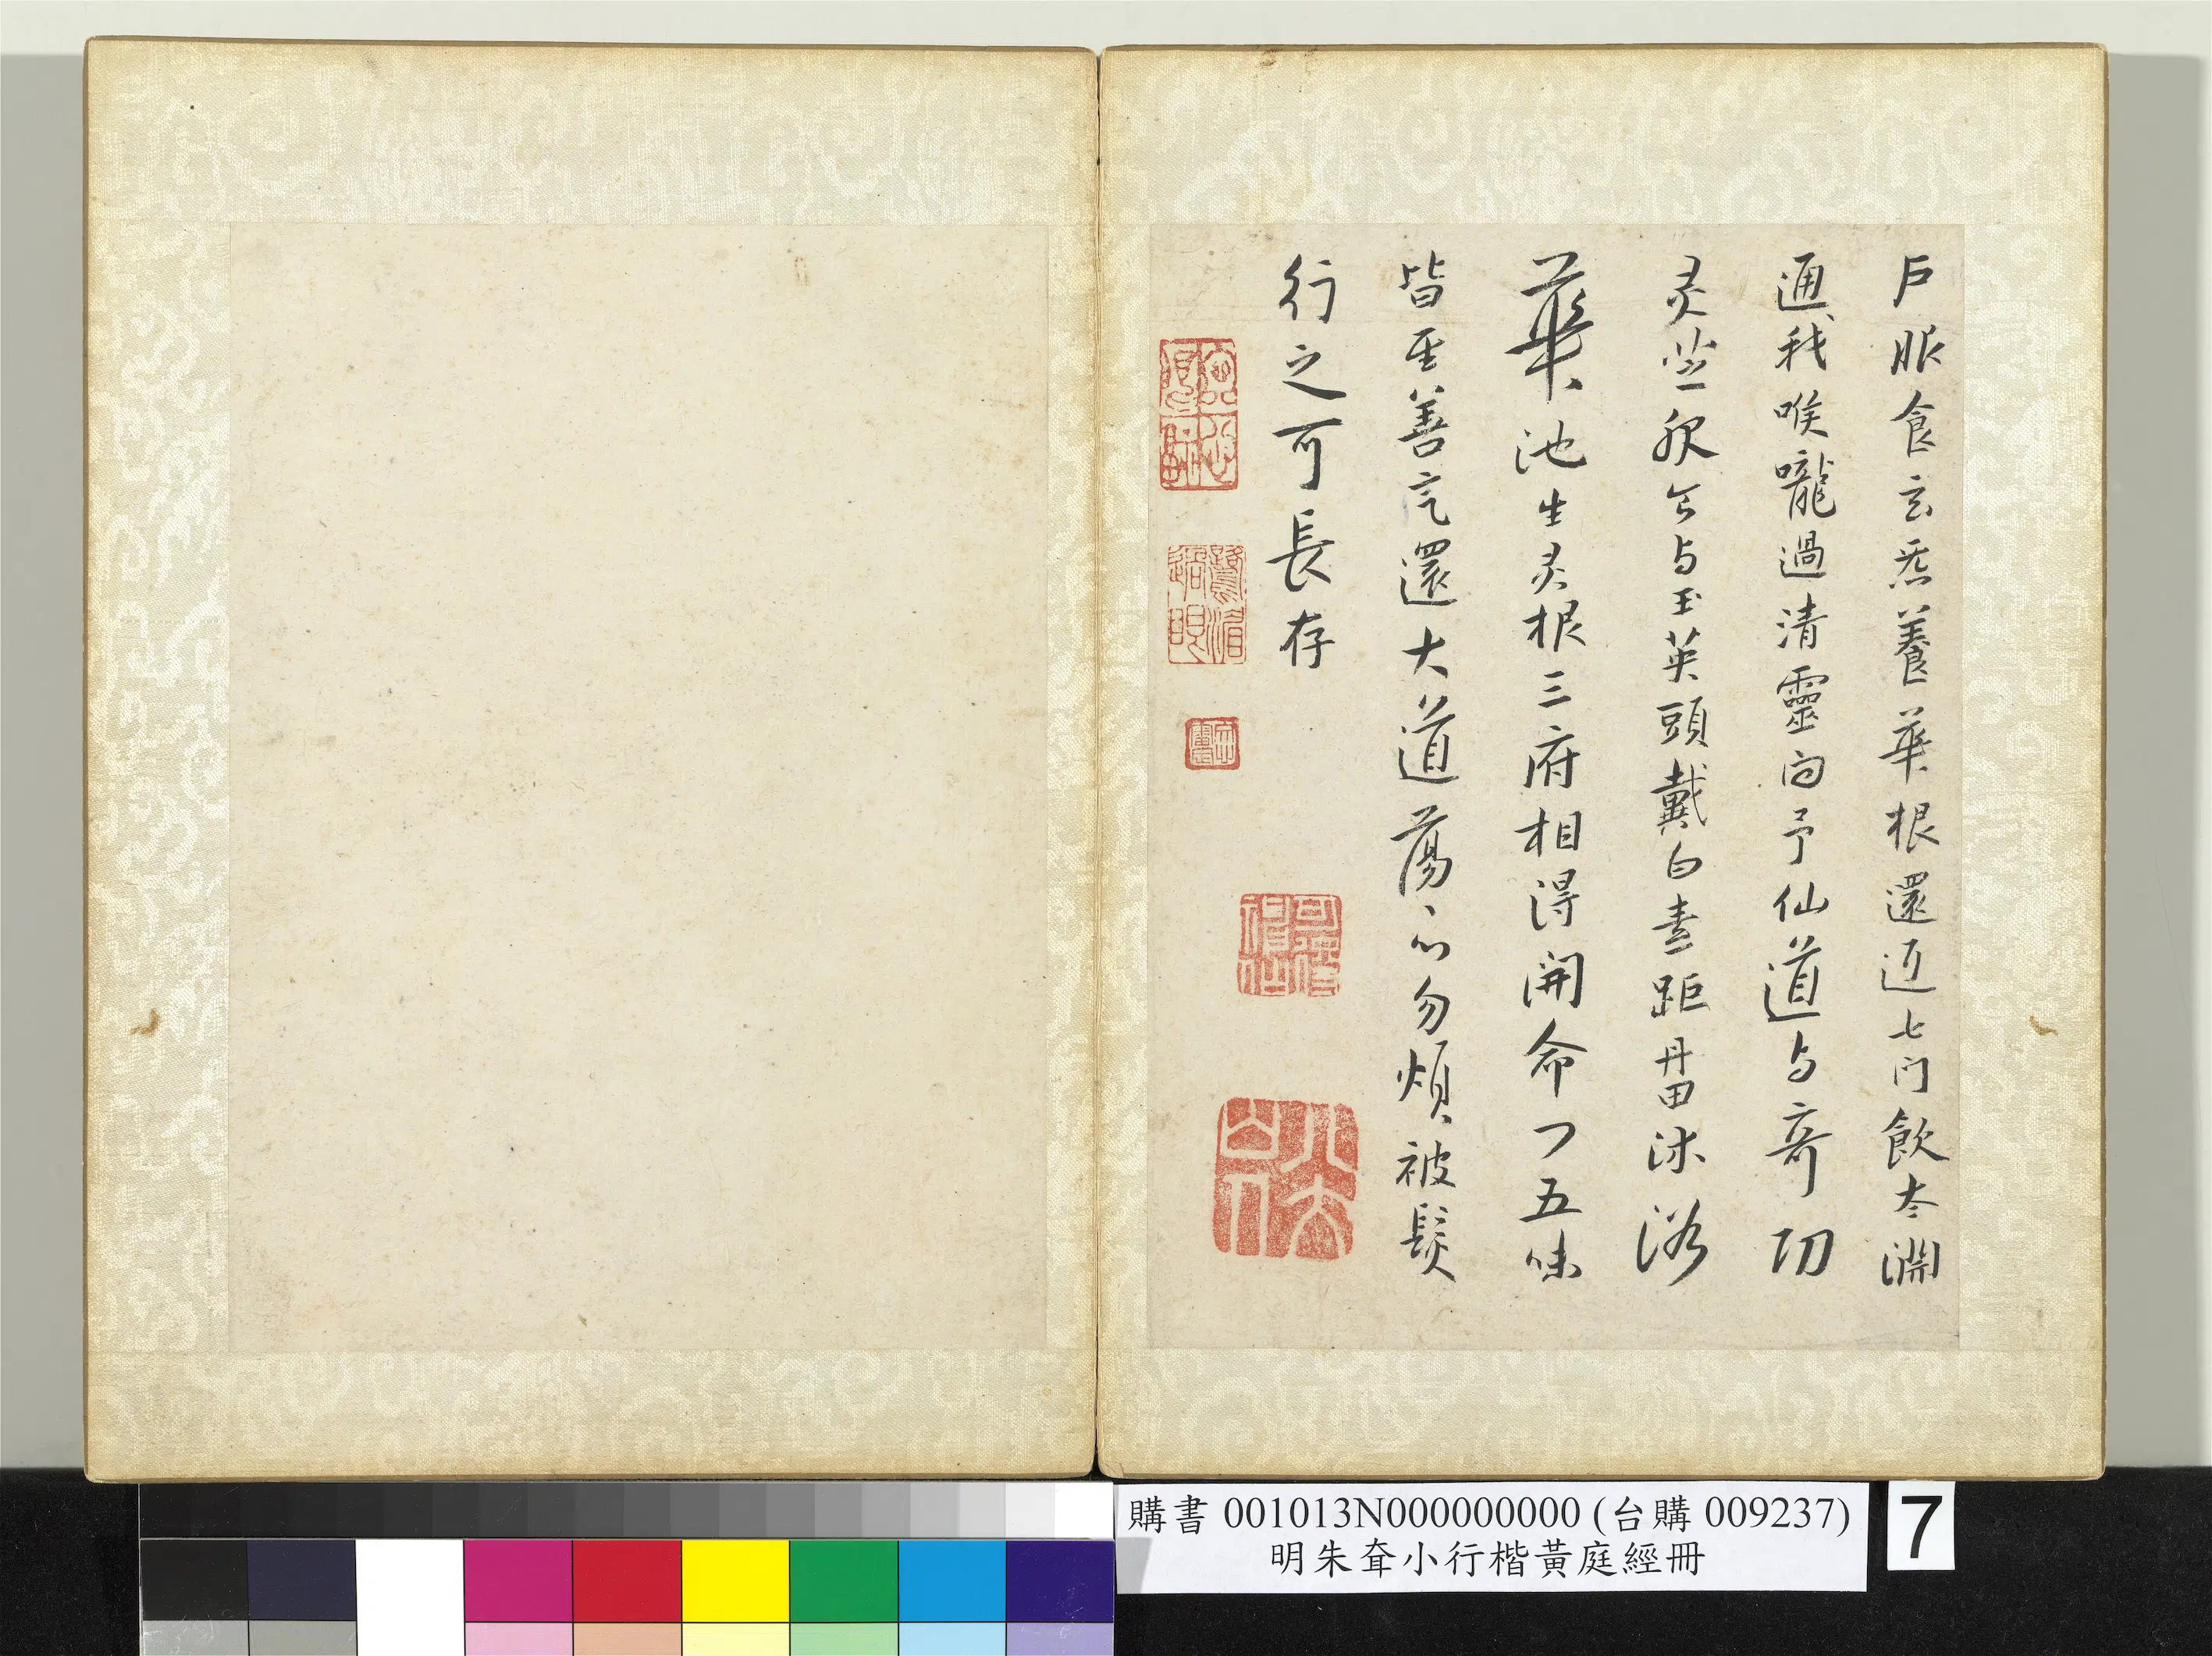 戶服食玄炁養華根還返七门飲太淵
通我喉嚨過清靈问予仙道与奇功
灵芝服兮与玉英頭戴白素距丹田沐浴
華池生灵根三府相得開命门五味
皆至善气還大道蕩〻心勿煩被髮
行之可長存
可得神仙
八大山人
購書 001013N000000000 (台購 009237)
明朱耷小行楷黃庭經冊
7